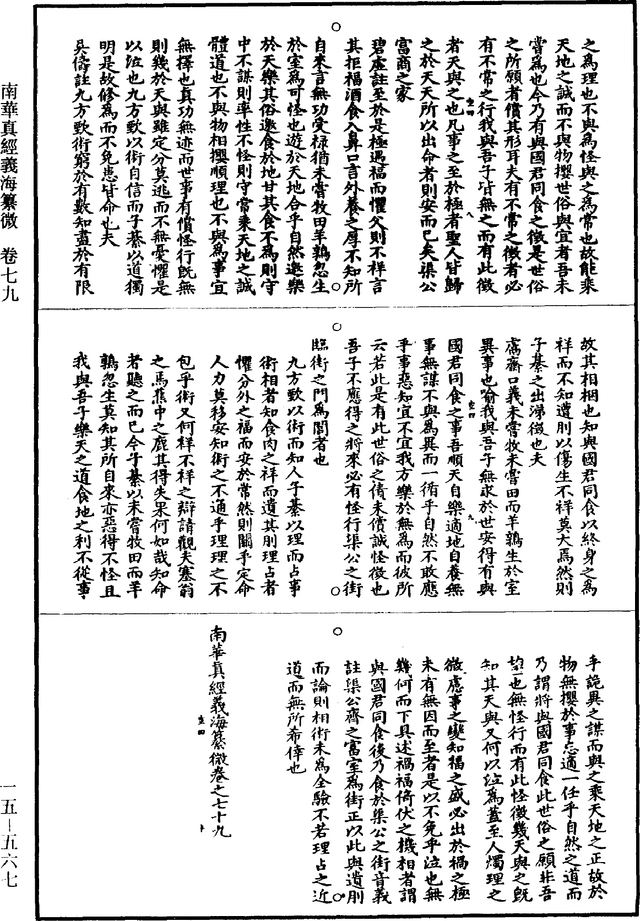 南華真經義海纂微　卷七九
一五—五六七
之為理也不與為怪與之為常也故能乘
天地之誠而不與物攖世俗與宜者吾未
嘗為也今乃有與國君同食之徵是世俗
之所願者償其形耳夫有不常之徵者必
有不常之行我與吾子皆無之而有此徵
者天與之也凡事之至於極者聖人皆歸
之於天天所以出命者則安而已矣渠公
富商之家
碧虛註至於是極過福而懼父則不祥言
其拒福酒食入鼻口言外養之厚不知所
自來言無功受祿猶未嘗牧田羊鶉忽生
於室為可怪也遊於天地合乎自然邀樂
於天樂其俗邀食於地甘其食不為則守
中不謀則率性不怪則守常乘天地之誠
體道也不與物相攖順理也不與為事宜
無擇也真功無迹而世事有償怪行既無
則幾於天與雖定分莫逃而不無憂懼是
以泣也九方歅以術自信而子綦以道獨
明是故修為而不免患皆命也夫
吳儔註九方歅術窮於有數知盡於有限
故其相梱也知與國君同食以終身之為
祥而不知遺刖以傷生不祥莫大焉然則
子綦之出涕徵也夫
鬳齋口義未嘗牧未嘗田而羊鶉生於室
異事也喻我與吾子無求於世安得有與
國君同食之事吾順天自樂適地自養無
事無謀不與為異而一循乎自然不敢應
乎事惡知宜不宜我方樂於無為而彼所
云若此是有此世俗之償未償誠怪徵也
吾子不應得之將來必有怪行渠公之街
臨街之門為閽者也
九方歅以術而知人子綦以理而占事
術相者知食肉之祥而遺其刖理占者
懼分外之福而安於常然則關乎定命
人力莫移安知術之不通乎理理之不
包乎術又何祥不祥之辯請觀夫塞翁
之馬蕉中之鹿其得失果何如哉知命
者聽之而已今子綦以未嘗牧田而羊
鶉忽生莫知其所自來亦惡得不怪且
我與吾子樂天之道食地之利不從事
乎詭異之謀而與之乘天地之正故於
物無攖於事忘適一任乎自然之道而
乃謂將與國君同食此世俗之願非吾
望也無怪行而有此怪徵幾天與之既
知其天與又何以泣為蓋至人燭理之
微慮事之變知福之盛必出於禍之極
未有無因而至者是以不免乎泣也無
幾何而下具述禍福倚伏之機相者謂
與國君同食後乃食於渠公之街音義
註渠公齊之富室為街正以此與遺刖
而論則相術未為全驗不若理占之近
道而無所希倖也
南華真經義海纂微卷之七十九